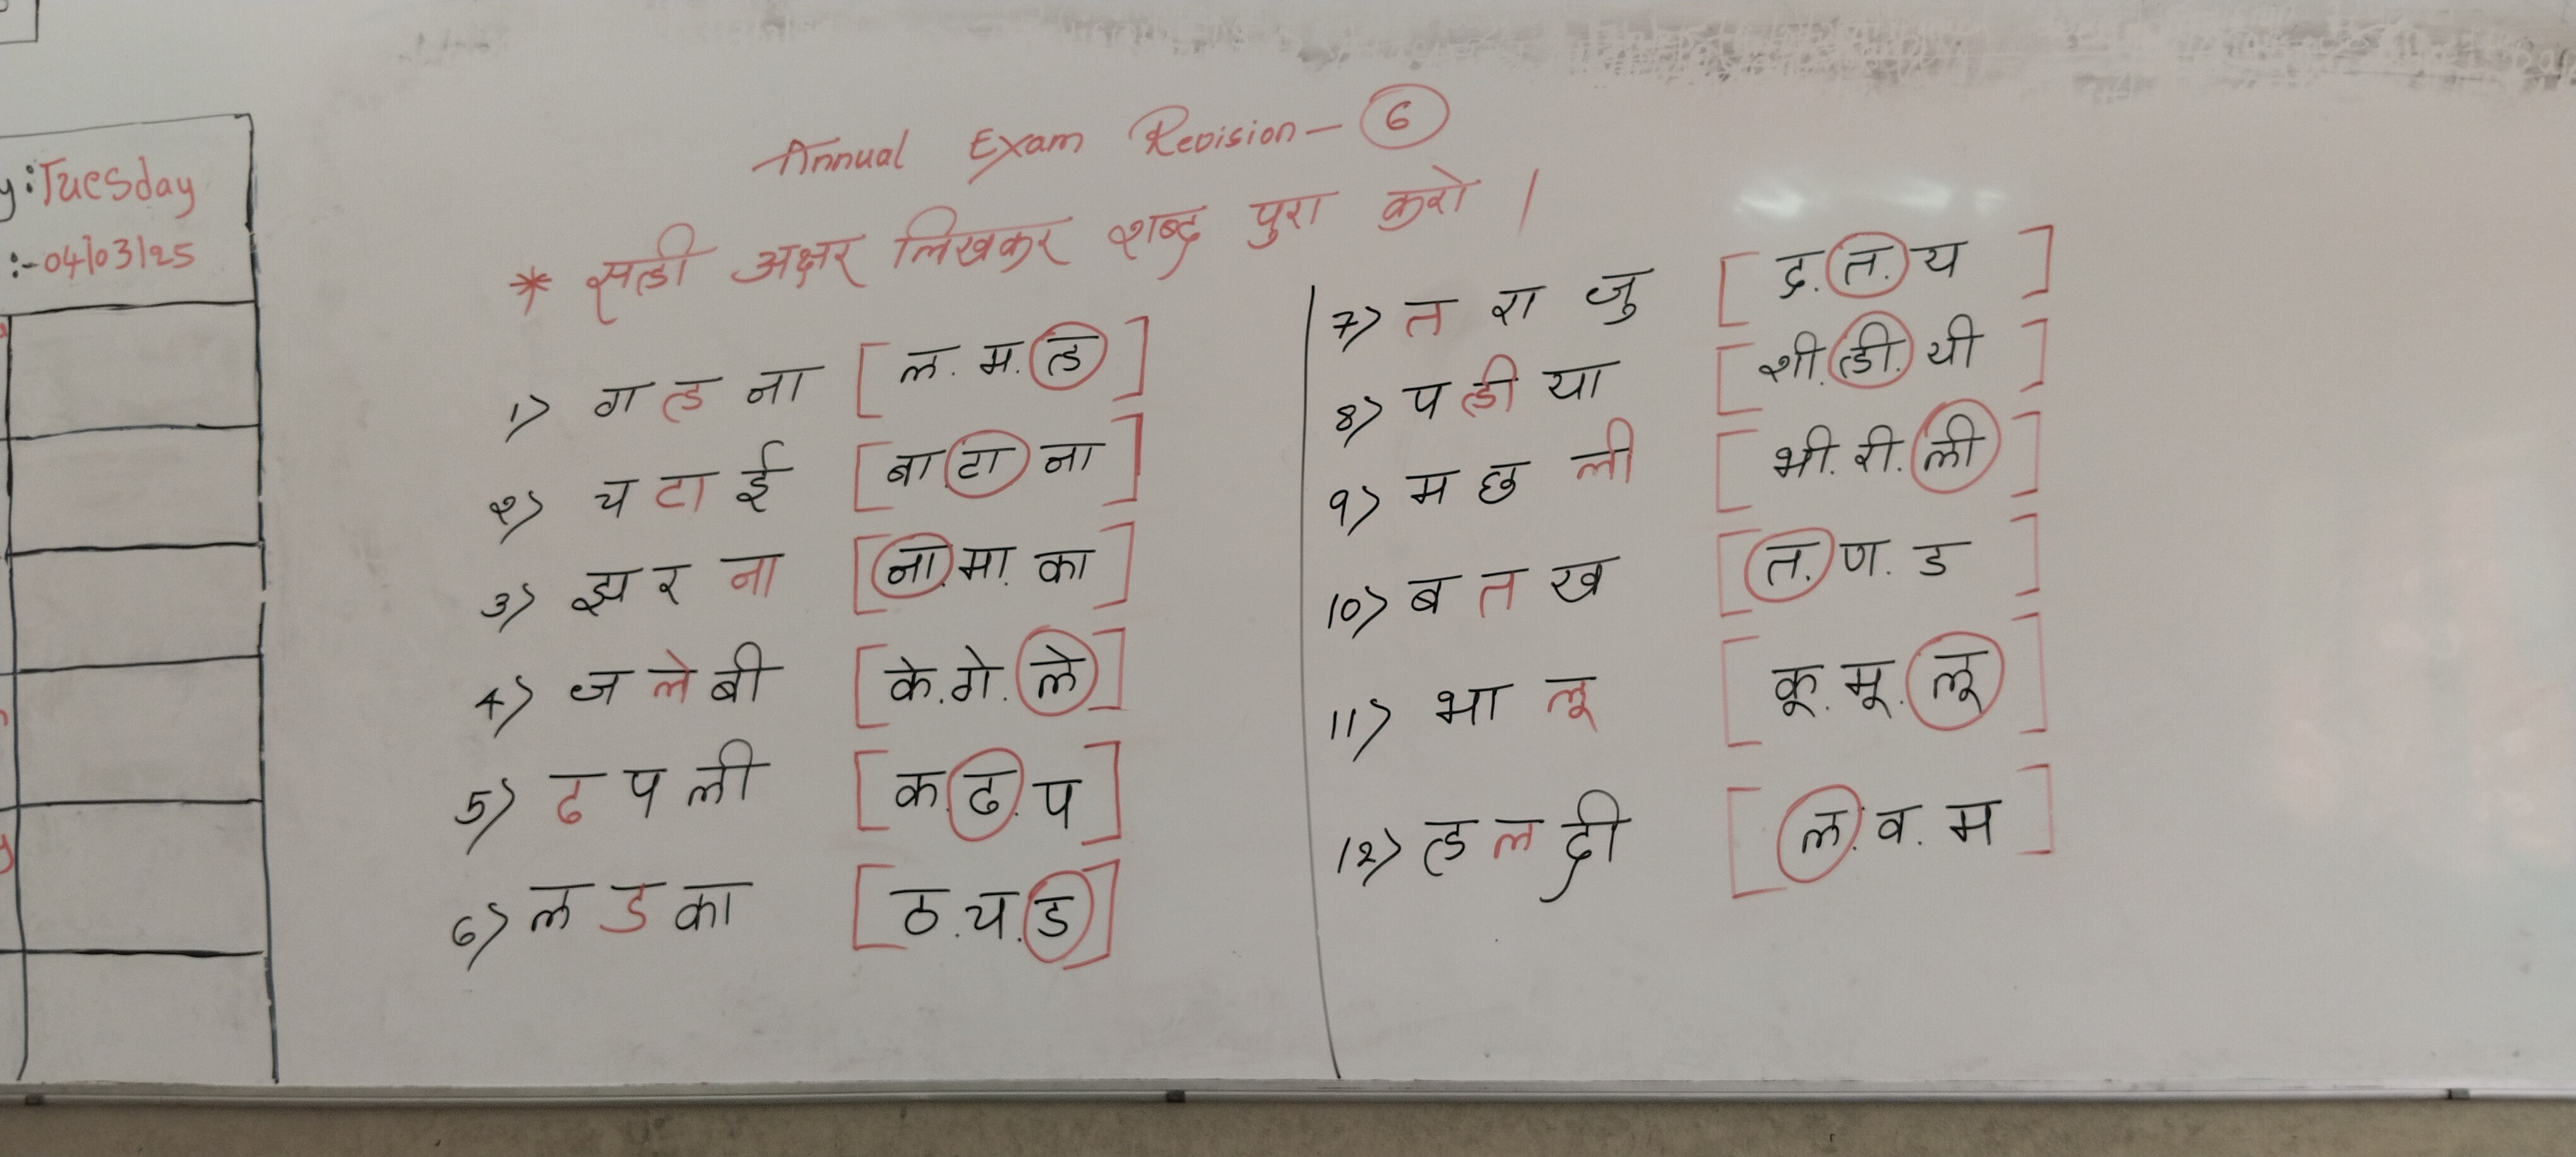 y: Tuesday
:- 04/03/25
Annual Exam Revision - 6
* सही अक्षर लिखकर शब्द पुरा करो ।
1) ग ह ना [ ल. म. ह ]
2) च टा ई [ बा टा ना ]
3) झ र ना [ ना. मा. का ]
4) ज ले बी [ के. गे. ले ]
5) ढ प ली [ क. ढ. प ]
6) ल ड का [ ठ. य. ड ]
7) त रा जु [ द. त. य ]
8) प ही या [ शी. ही. यी ]
9) म छ ली [ भी. री. ली ]
10) ब त ख [ त. ण. ड ]
11) भा लू [ कू. मू. लू ]
12) ह ल दी [ ल. व. म ]